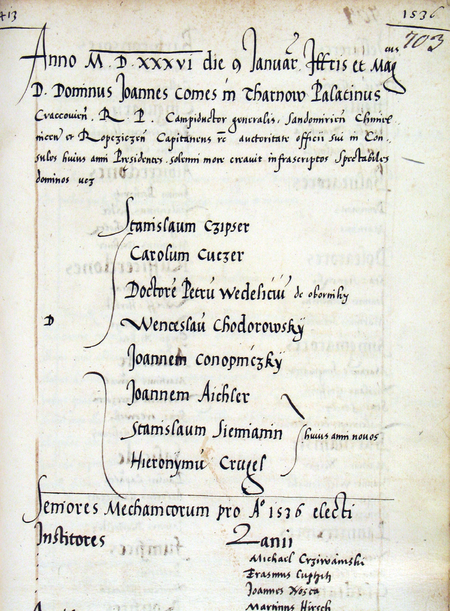 413
1536
703
Anno M D XXXVI die 9 Januar Illris et Magcus
D. Dominus Joannes Comes in Tharnow Palatinus
Cracovien R. P. Campiductor generalis, Sandomirien
necen et Ropczicen Capitaneus rc auctoritate officii sui in Con
sules huius anni Presidentes solenni more creavit infrascriptos Spectabiles
dominos vcz
Stanislaum Czipser
Carolum Cuczer
Doctore Petru Wedeliciu de oborniky
D
Wenceslau Chodorowsky
Joannem Conopniczky
Joannem Aichler
Stanislaum Siemianin huius anni novos
Hieronymu Crugel
Seniores Mechanicorum pro Ao 1536 electi
Institores
Lanii
Michael Crziwamski
Erasmus
Joannes
Martinus Hirsch